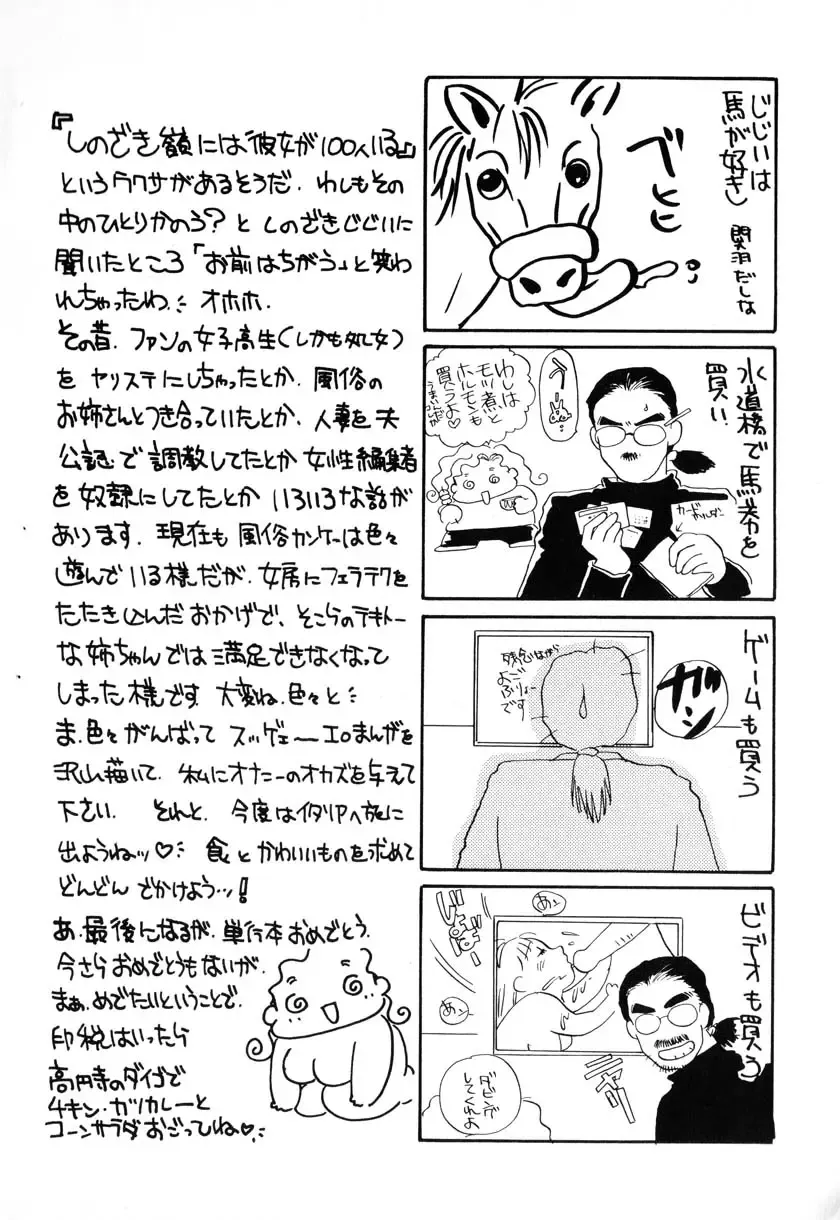 じじいは
馬が好き
関羽だしな
ベヒヒ
水道橋で馬券を
買い
わしは
モツ煮と
ホルモンも
買うよ♡
うまいんだが
カードホルダー
ゲームも買う
ガン
残念ながら
よご
ふりょー
です
ビデオも買う
あっ
あっ
ダビング
してくれよ
『しのざき嶺には彼女が100人いる』
というウワサがあるそうだ。わしもその
中のひとりかのう？としのざきじじいに
聞いたところ「お前はちがう」と笑わ
れちゃったわ。オホホ。
その昔、ファンの女子高生(しかも処女)
をヤリステにしちゃったとか、風俗の
お姉さんとつき合っていたとか、人妻を夫
公認で調教してたとか女性編集者
を奴隷にしてたとかいろいろな話が
あります。現在も風俗カンケーは色々
遊んでいる様だが、女房にフェラテクを
たたき込んだおかげで、そこらのテキトー
な姉ちゃんでは満足できなくなって
しまった様です 大変ね、色々と
ま、色々がんばってスッゲェーエロまんがを
沢山描いて、私にオナニーのオカズを与えて
下さい。それと、今度はイタリアへ旅に
出ようねッ♡食とかわいいものを求めて
どんどんでかけよう…！
あ、最後になるが、単行本おめでとう。
今さらおめでとうもないが、
まぁ、めでたいということで、
印税はいったら
高円寺のダイゴで
チキン・カツカレーと
コーンサラダおごってね♡